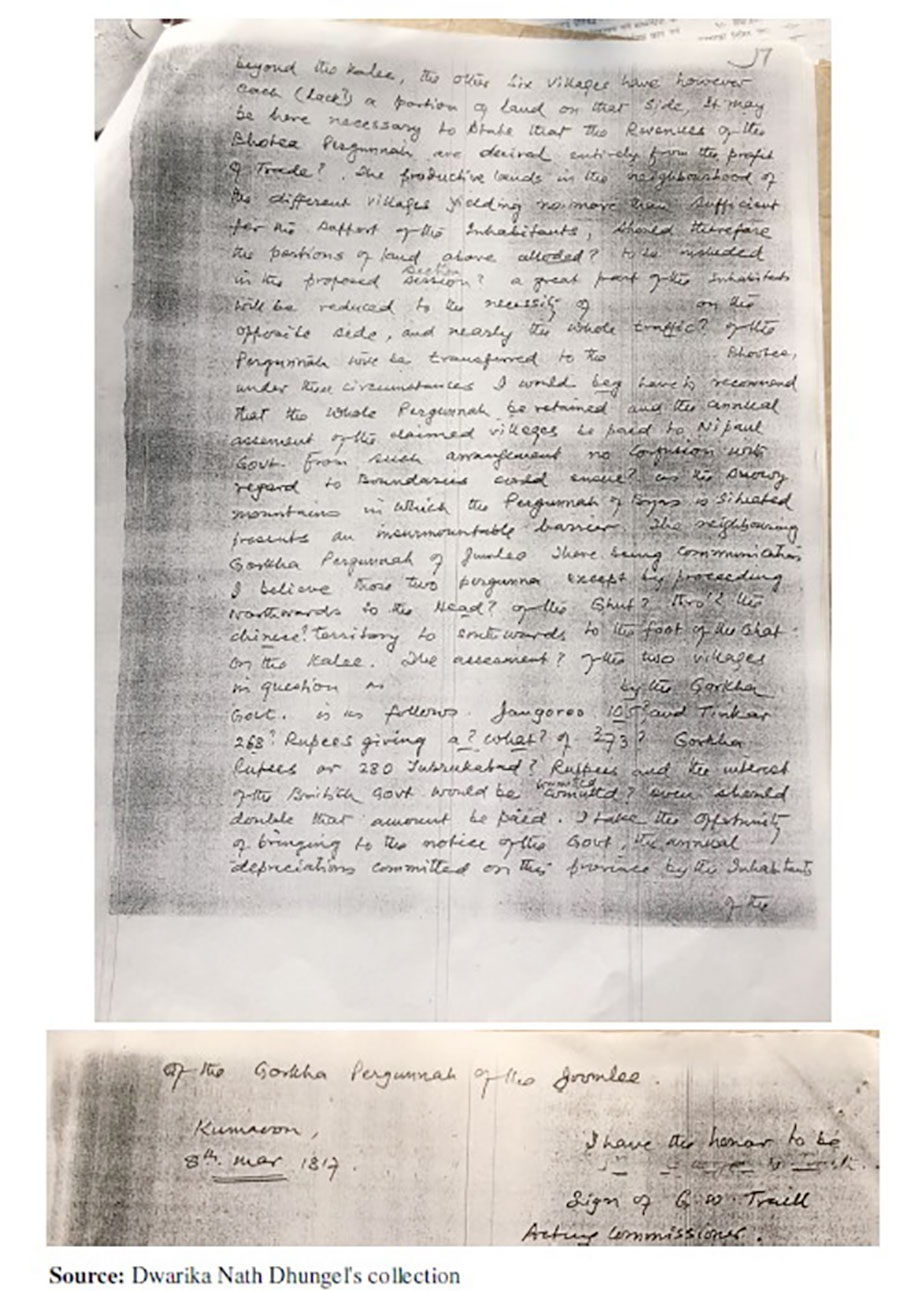 37
beyond the Kalee, the other Six Villages have however
each (lack?) a portion of land on that side, It may
be here necessary to State that the Revenues of the
Bhotea Pergunnah are derived entirely from the profit
of Trade? . The productive lands in the neighbourhood of
the different villages yielding no more than sufficient
for the Support of the Inhabitants, should therefore
the portions of land above alloded? to be included
in the proposed Session? a great part of the Inhabitants
will be reduced to the necessity of on the
opposite side, and nearly the whole traffic? of the
Pergunnah will be transferred to the Bhootea,
under these circumstances I would beg have to recommend
that the whole Pergunnah be retained and the annual
assement of the claimed villages be paid to Nipaul
Govt. From such arrangement no Confusion with
regard to Boundaries could ensue? as the Snowy
mountains in which the Pergunnah of Byas is Situated
presents an insurmountable barrier. The neighbouring
Gorkha Pergunnah of Jumlee There being communication
I believe those two pergunna except by proceeding
Northwards to the Head? of the Ghut? thro'? the
chinese? territory to southwards to the foot of the Ghat
on the Kalee. The assesment? of the two villages
in question as by the Gorkha
Govt. is as follows. Jangoroo 105? and Tinkar
268? Rupees giving a? what? of 373? Gorkha
Rupees or 280 Furrukabad? Ruppees and the interest
of the British Govt would be committed? even should
double that amount be paid. I take the Opportunity
of bringing to the notice of the Govt, the annual
depreciations committed on this province by the Inhabitants
of the
Of the Gorkha Pergunnah of the Joomlee.
Kumaoon,
8th. Mar 1817.
I have the honor to be
Sign of G. W. Traill
Acting Commissioner.
Source: Dwarika Nath Dhungel's collection